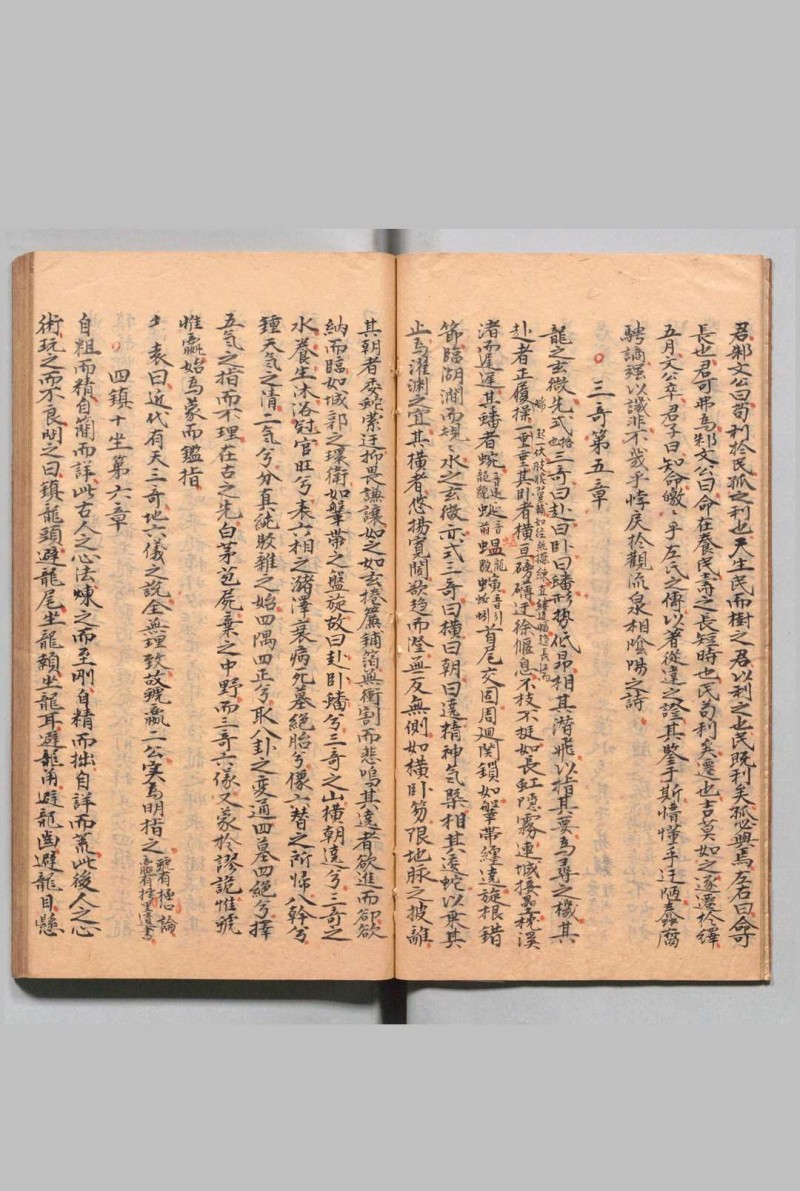 君邾文公曰苟利於民孤之利也天生民而樹之君以利之也民既利矣孤必與焉左右曰命可
長也君何弗為邾文公曰命在養民壽之長短時也民苟利矣遷也吉莫如之遂遷於繹
五月文公卒君子曰知命噭乎左氏之傳以著從達之證其鑒乎斯情懂乎迂陋蠢腐
騁譎強以讖非不歲乎悖戾於觀流泉相陰陽之詩
三奇第五章
龍之玄微先式三奇曰赴曰臥曰蟠形勢低昂相其潛飛以指其要為尋之機其
赴者正履操一重重其則者橫亘磅礴迂徐偃息不枝不挺如長虹隱霧連城接壘枕溪
渚而遲遲其蟠者蜿蜒蝹首尾交固周迴関鎖如鞶帶纏達旋根錯
節臨湖澗而規水之玄微亦式三奇曰橫曰朝曰遶精神氣槩相其逶蛇以乘其
止為濯淵之宜其橫者悠揚寬闊欲趍而澄無反無側如橫臥笏限地脉之披離
其朝者委蛇縈迂抑畏謙讓如之如玄捲簾鋪箔無衝割而悲鳴其遶者欲進而卻欲
納而臨如城郭之環衛如鞶帶之盤旋故曰赴臥蟠兮三奇之山橫朝遶兮三奇之
水養生沐浴冠官旺兮表六相之瀦澤衰病死墓絕胎兮像六替之所帰八幹兮
鍾天氣之清二氣兮分真純駁雜之始四隅四正兮取八卦之变通四墓四絕兮擇
五氣之指而不理在古之先白茅苞屍棄之中野而三奇六儀又蒙於謬說惟號
惟嬴始為蒙而鑑指
袁曰近代有天三奇地六儀之說全無理致故虢嬴二公实為明指之
四鎮十坐第六章
自粗而精自簡而詳此古人之心法煉之而至剛自精而拙自詳而荒此後人之心
術玩之而不良明之曰鎮龍頭避龍尾坐龍顙坐龍耳避龍角避龍齒避龍目懸